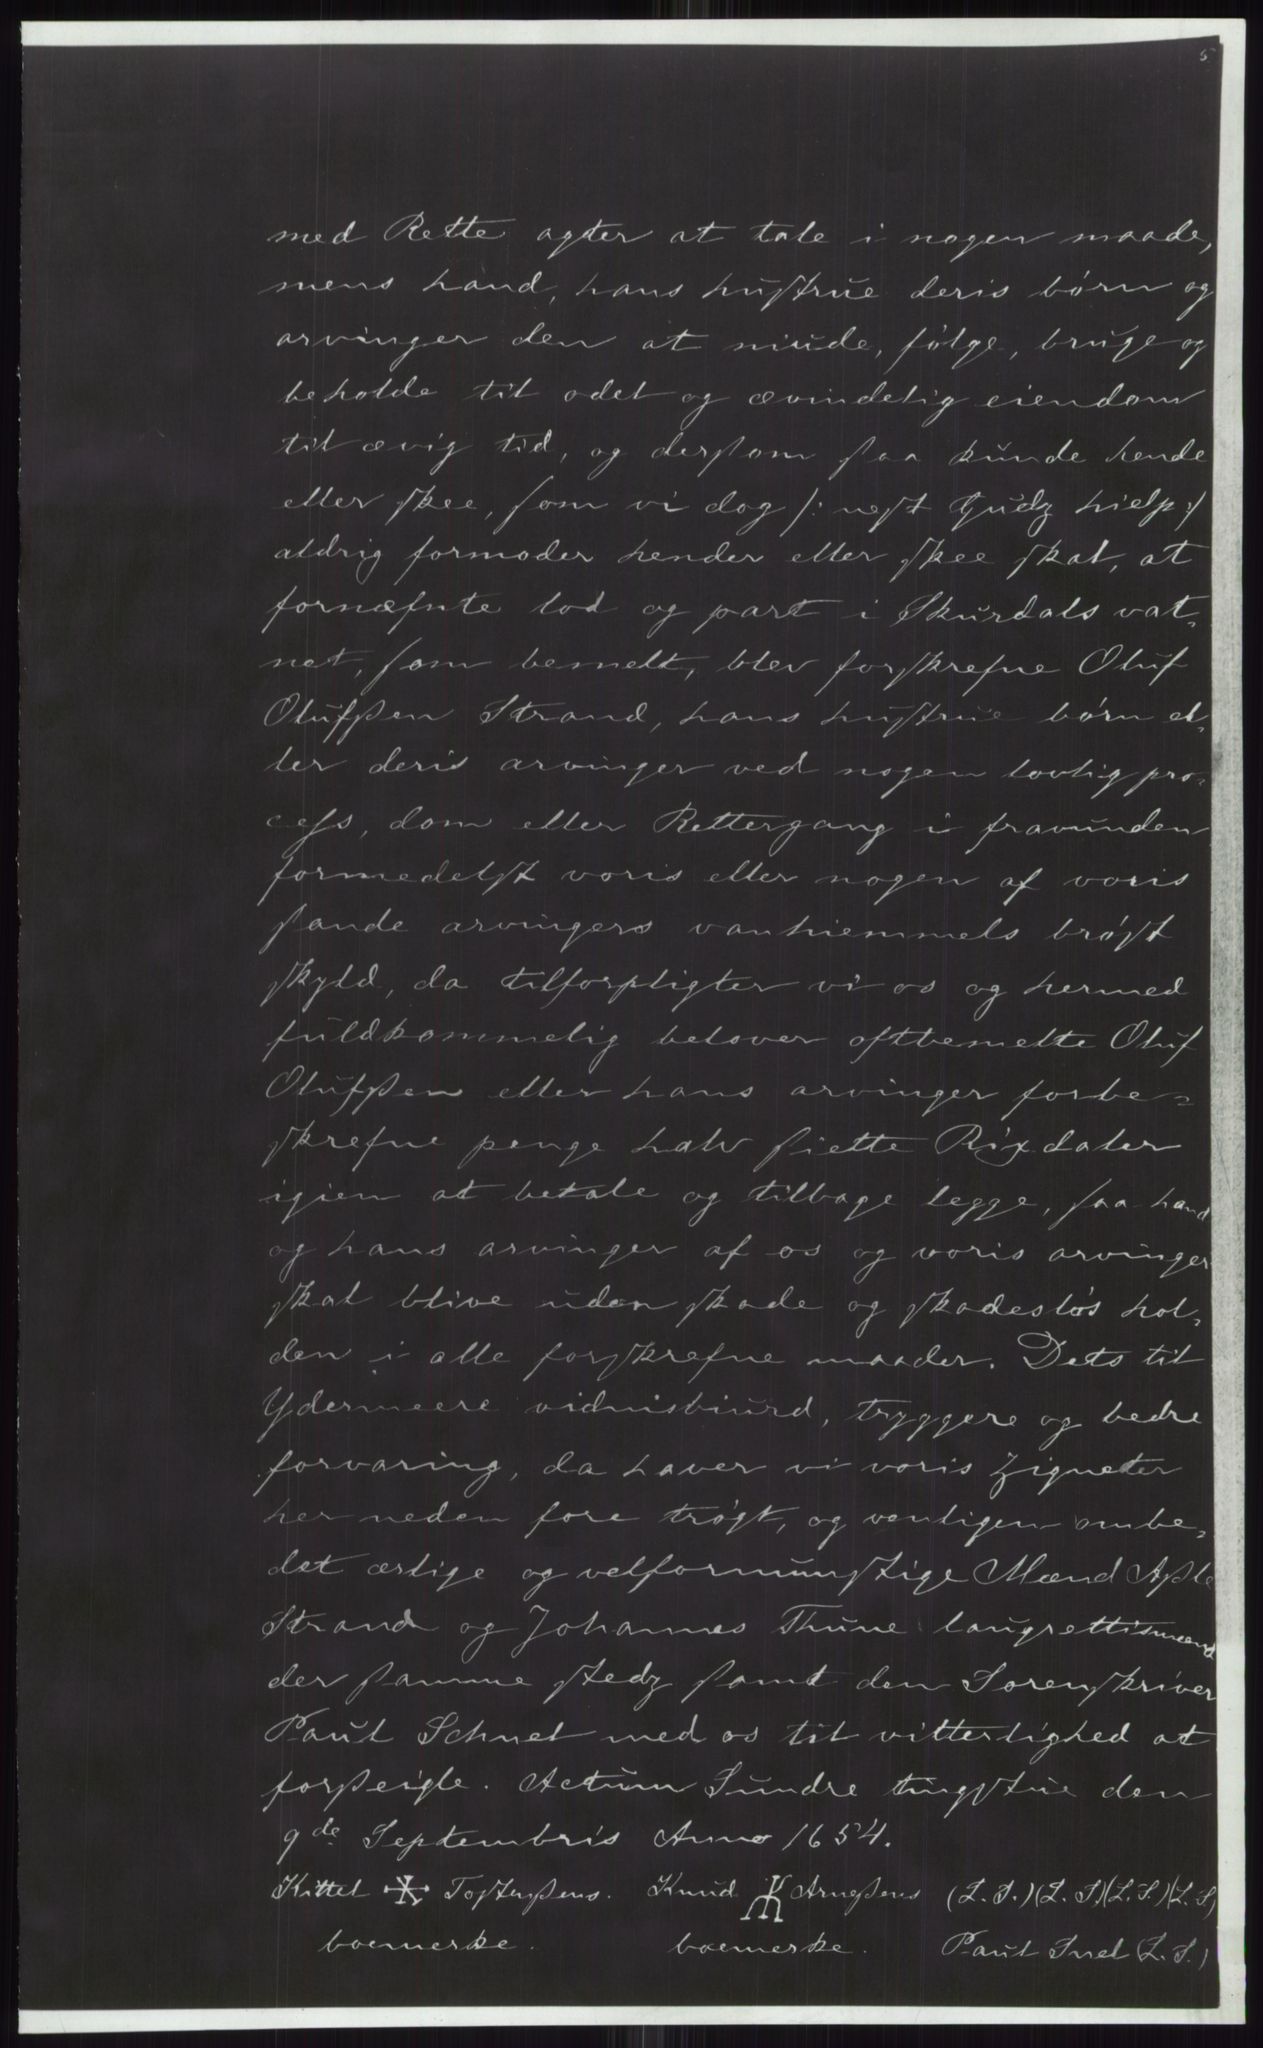 5
med Rette agter at tale i nogen maade,
mens hand, hans hustrue deris børn og
arvinger den at niude, følge, bruge og
beholde til odel og ævindelig eiendom
til ævig tid, og dersom saa kunde hende
eller skee, som vi dog /: nest Gudz hielp :/
aldrig formoder hender eller skee skal, at
fornæfnte lod og part i Skurdals vat-
net, som bemelt, blev forskrefne Oluf
Olufsen Strand, hans hustrue børn el-
ler deris arvinger ved nogen lovlig pro-
cess, dom eller Rettergang i fravunden
formedelst voris eller nogen af voris
sande arvingers vanhiemmels brøst
skyld, da tilforpligter vi os og hermed
fuldkommelig belover oftbemelte Oluf
Olufsen eller hans arvinger forbe-
skrefne penge halv siette Rixdaler
igien at betale og tilbage legge, saa hand
og hans arvinger af os og voris arvinger
skal blive uden skade og skadesløs hol-
den i alle forskrefne maader. Dets til
Ydermeere vidnisbiurd, tryggere og bedre
forvaring, da haver vi voris zigneter
her neden fore trøgt, og venligen ombe-
det ærlige og velfornumstige Mænd Asle
Strand og Johannes Thune laugrettismænd
der samme stedz samt den Sorenskriver
Paul Schnel med os til vitterlighed at
forseigle. Actum Sundre tingstue den
9de Septembris Anno 1654.
Kittel Tostensens. Knud Arnesens (L. S.) (L. S.) (L. S.) (L. S.)
boemerke. boemerke. Paul Snel (L. S.)